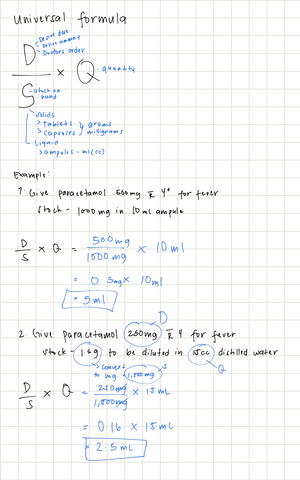 Universal formula
D - Desire dose
- Desire amount
- Doctors order
— × Q - quantity
S - stock on
hand
solids
> tablets } grams
> capsules } milligrams
Liquid
> ampules - ml (cc)
Example:
1. Give paracetamol 500mg q 4° for fever
stock - 1000mg in 10ml ampule
D/S × Q = 500mg/1000mg × 10ml
= 0.5mg × 10ml
= 5ml
D
2. Give paracetamol 250mg q 4 for fever
stock - 1.6g to be diluted in 15cc distilled water
> convert S
to mg = 1,600mg Q
D/S × Q = 250mg/1,600mg × 15mL
= 0.16 × 15mL
= 2.5mL